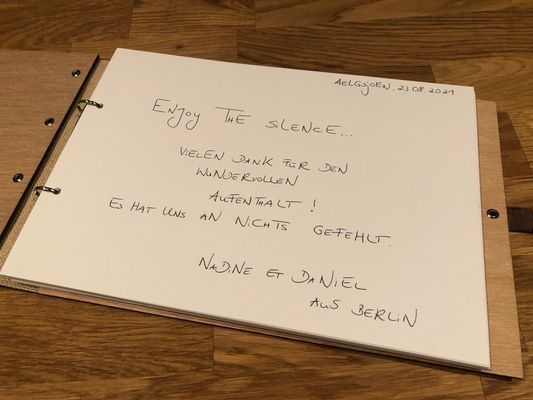 AELGSJOEN, 23.08.2021
ENJOY THE SILENCE...
VIELEN DANK FÜR DEN
WUNDERVOLLEN
AUFENTHALT!
ES HAT UNS AN NICHTS GEFEHLT.
NADINE ET DANIEL
AUS BERLIN